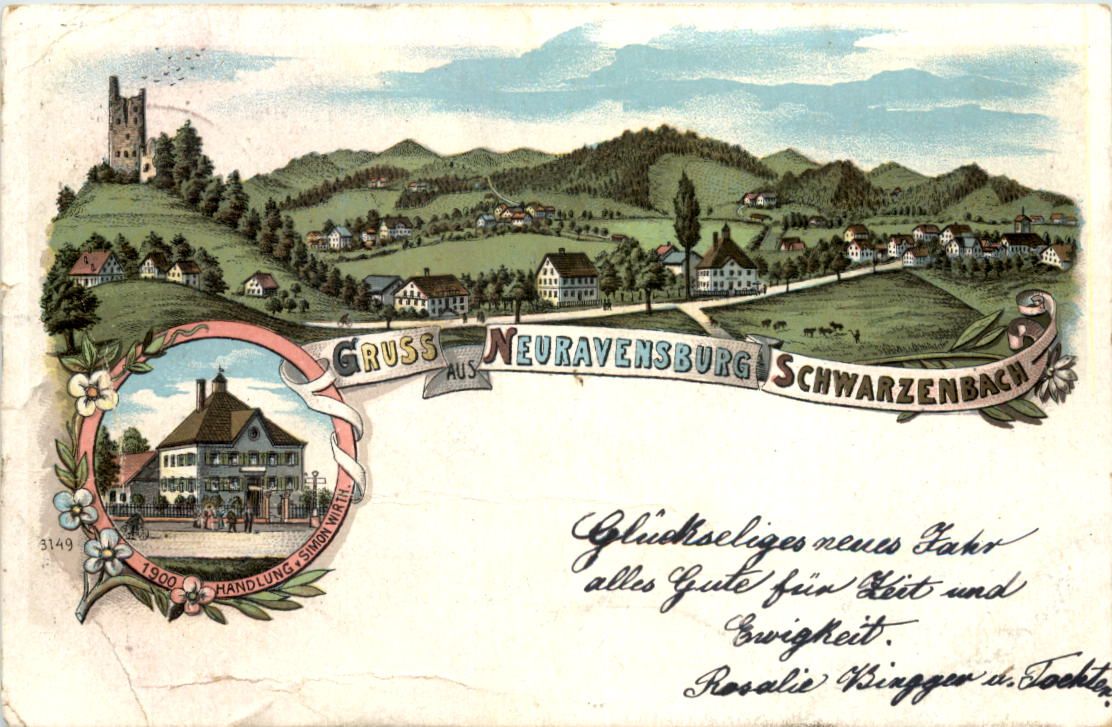 GRUSS AUS NEURAVENSBURG SCHWARZENBACH
3149
1900 HANDLUNG v. SIMON WIRTH.
Glückseliges neues Jahr
alles Gute für Zeit und
Ewigkeit.
Rosalie Bingger u. Tochter.